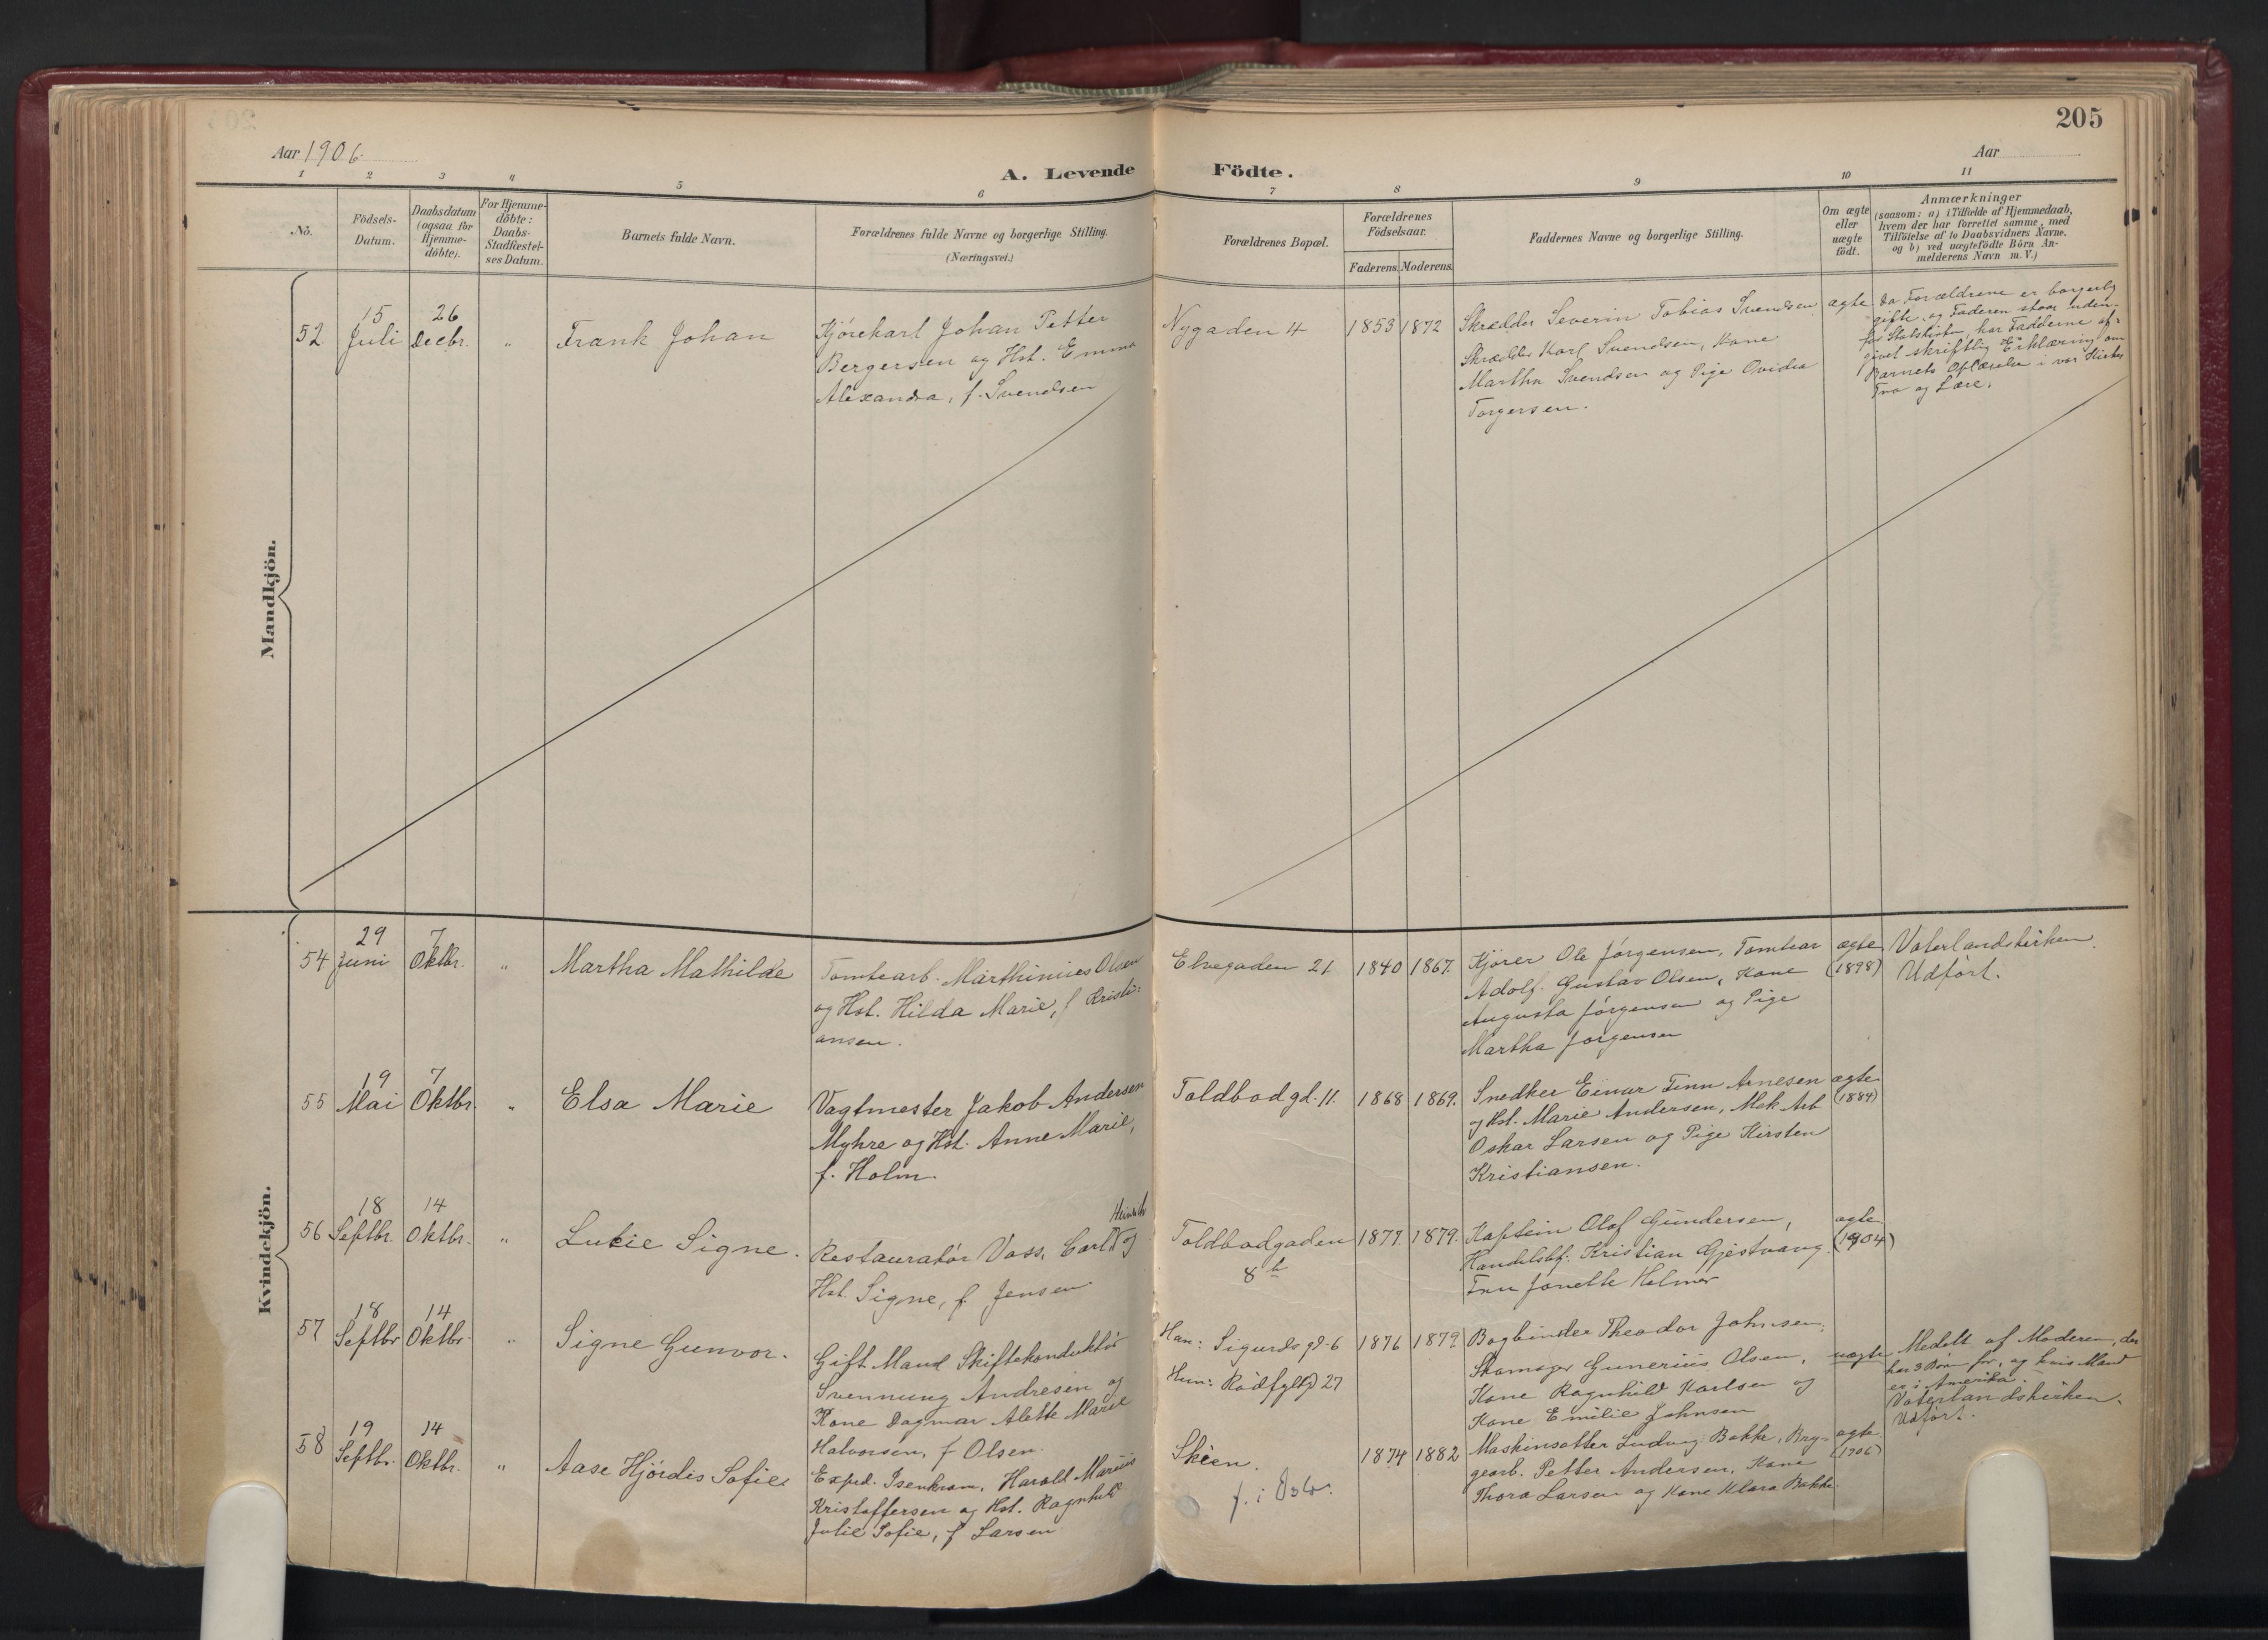 205
Aar 1906
Aar
A. Levende Födte.
1 2 3 4 5 6 7 8 9 10 11
No.
Födsels-
Datum.
Daabsdatum
(ogsaa for
Hjemme-
döbte).
For Hjemme-
döbte:
Daabs-
Stadfæstel-
ses Datum.
Barnets fulde Navn.
Forældrenes fulde Navne og borgerlige Stilling.
(Næringsvei.)
Forældrenes Bopæl.
Forældrenes
Födselsaar.
Faderens. Moderens.
Faddernes Navne og borgerlige Stilling.
Om ægte
eller
uægte
födt.
Anmærkninger
(saasom: a) i Tilfælde af Hjemmedaab,
hvem der har forrettet samme, med
Tilföielse af to Daabsvidners Navne,
og b) ved uægtefödte Börn An-
melderens Navn m. V.)
Mandkjön.
52
15
Juli
26
Decbr.
"
Frank Johan
Kjörekarl Johan Petter
Bergersen og Hst. Emma
Alexandra, f. Svendsen
Nygaden 4
1853
1872
Skrædder Severin Tobias Svendsen
Skrædder Karl Svendsen, Kone
Martha Svendsen og Pige Ovidia
Torgersen.
ægte
Da Forældrene er borgerlig
gifte, og Faderen staar uden-
for Statskirken, har Fadderne af-
givet skriftlig Erklæring om
Barnets Oplærelse i vor Kirkes
Tro og Lære.
Kvindekjön.
54
29
Juni
7
Oktbr.
"
Martha Mathilde
Tomtearb. Marthinius Olsen
og Hst. Hilda Marie, f Kristi-
ansen.
Elvegaden 21
1840
1867.
Kjører Ole Jörgensen, Tomtear
Adolf Gustav Olsen, Kone
Augusta Jörgensen og Pige
Martha Jörgensen
ægte
(1898)
Vaterlandskirken.
Udfört.
55
19
Mai
7
Oktbr.
"
Elsa Marie
Vagtmester Jakob Andersen
Myhre og Hst. Anne Marie,
f. Holm.
Toldbodgd. 11.
1868
1869.
Snedker Einar Finn Arnesen
og Hst. Marie Andersen, Mek Arb
Oskar Larsen og Pige Kirsten
Kristiansen.
ægte
(1884)
56
18
Septbr.
14
Oktbr.
"
Lukie Signe.
Restauratör Voss, Carl og
Hst. Signe, f. Jensen
Toldbodgaden
8 b
1877.
1879.
Kaptein Olaf Gundersen,
Handelsbf. Kristian Gjestvang
Fru Janette Holmer
ægte
(1904)
57
18
Septbr
14
Oktbr.
"
Signe Gunvor.
Gift Mand Skiftekonduktör
Svennung Andresen og
Kone Dagmar Alette Marie
Halvorsen, f Olsen.
Han: Sigurds gd. 6
Hun: Rödfyldgd 27
1876
1879
Bogbinder Theodor Johnsen,
Skomager Gunerius Olsen,
Kone Ragnhild Karlsen og
Kone Emilie Johnsen
uægte
Meddelt af Moderen, der
har 3 Børn för, og hvis Mand
er i Amerika.
Vaterlandskirken.
Udfört.
58
19
Septbr.
14
Oktbr.
"
Aase Hjördis Sofie
Exped. Isenkram, Harald Marius
Kristoffersen og Hst. Ragnhild
Julie Sofie, f Larsen
Skien.
f. i Oslo.
1874
1882
Maskinsætter Ludvig Bakke, Bryg-
gearb. Petter Andersen, Kone
Thora Larsen og Kone Klara Bakke.
ægte
(1906)